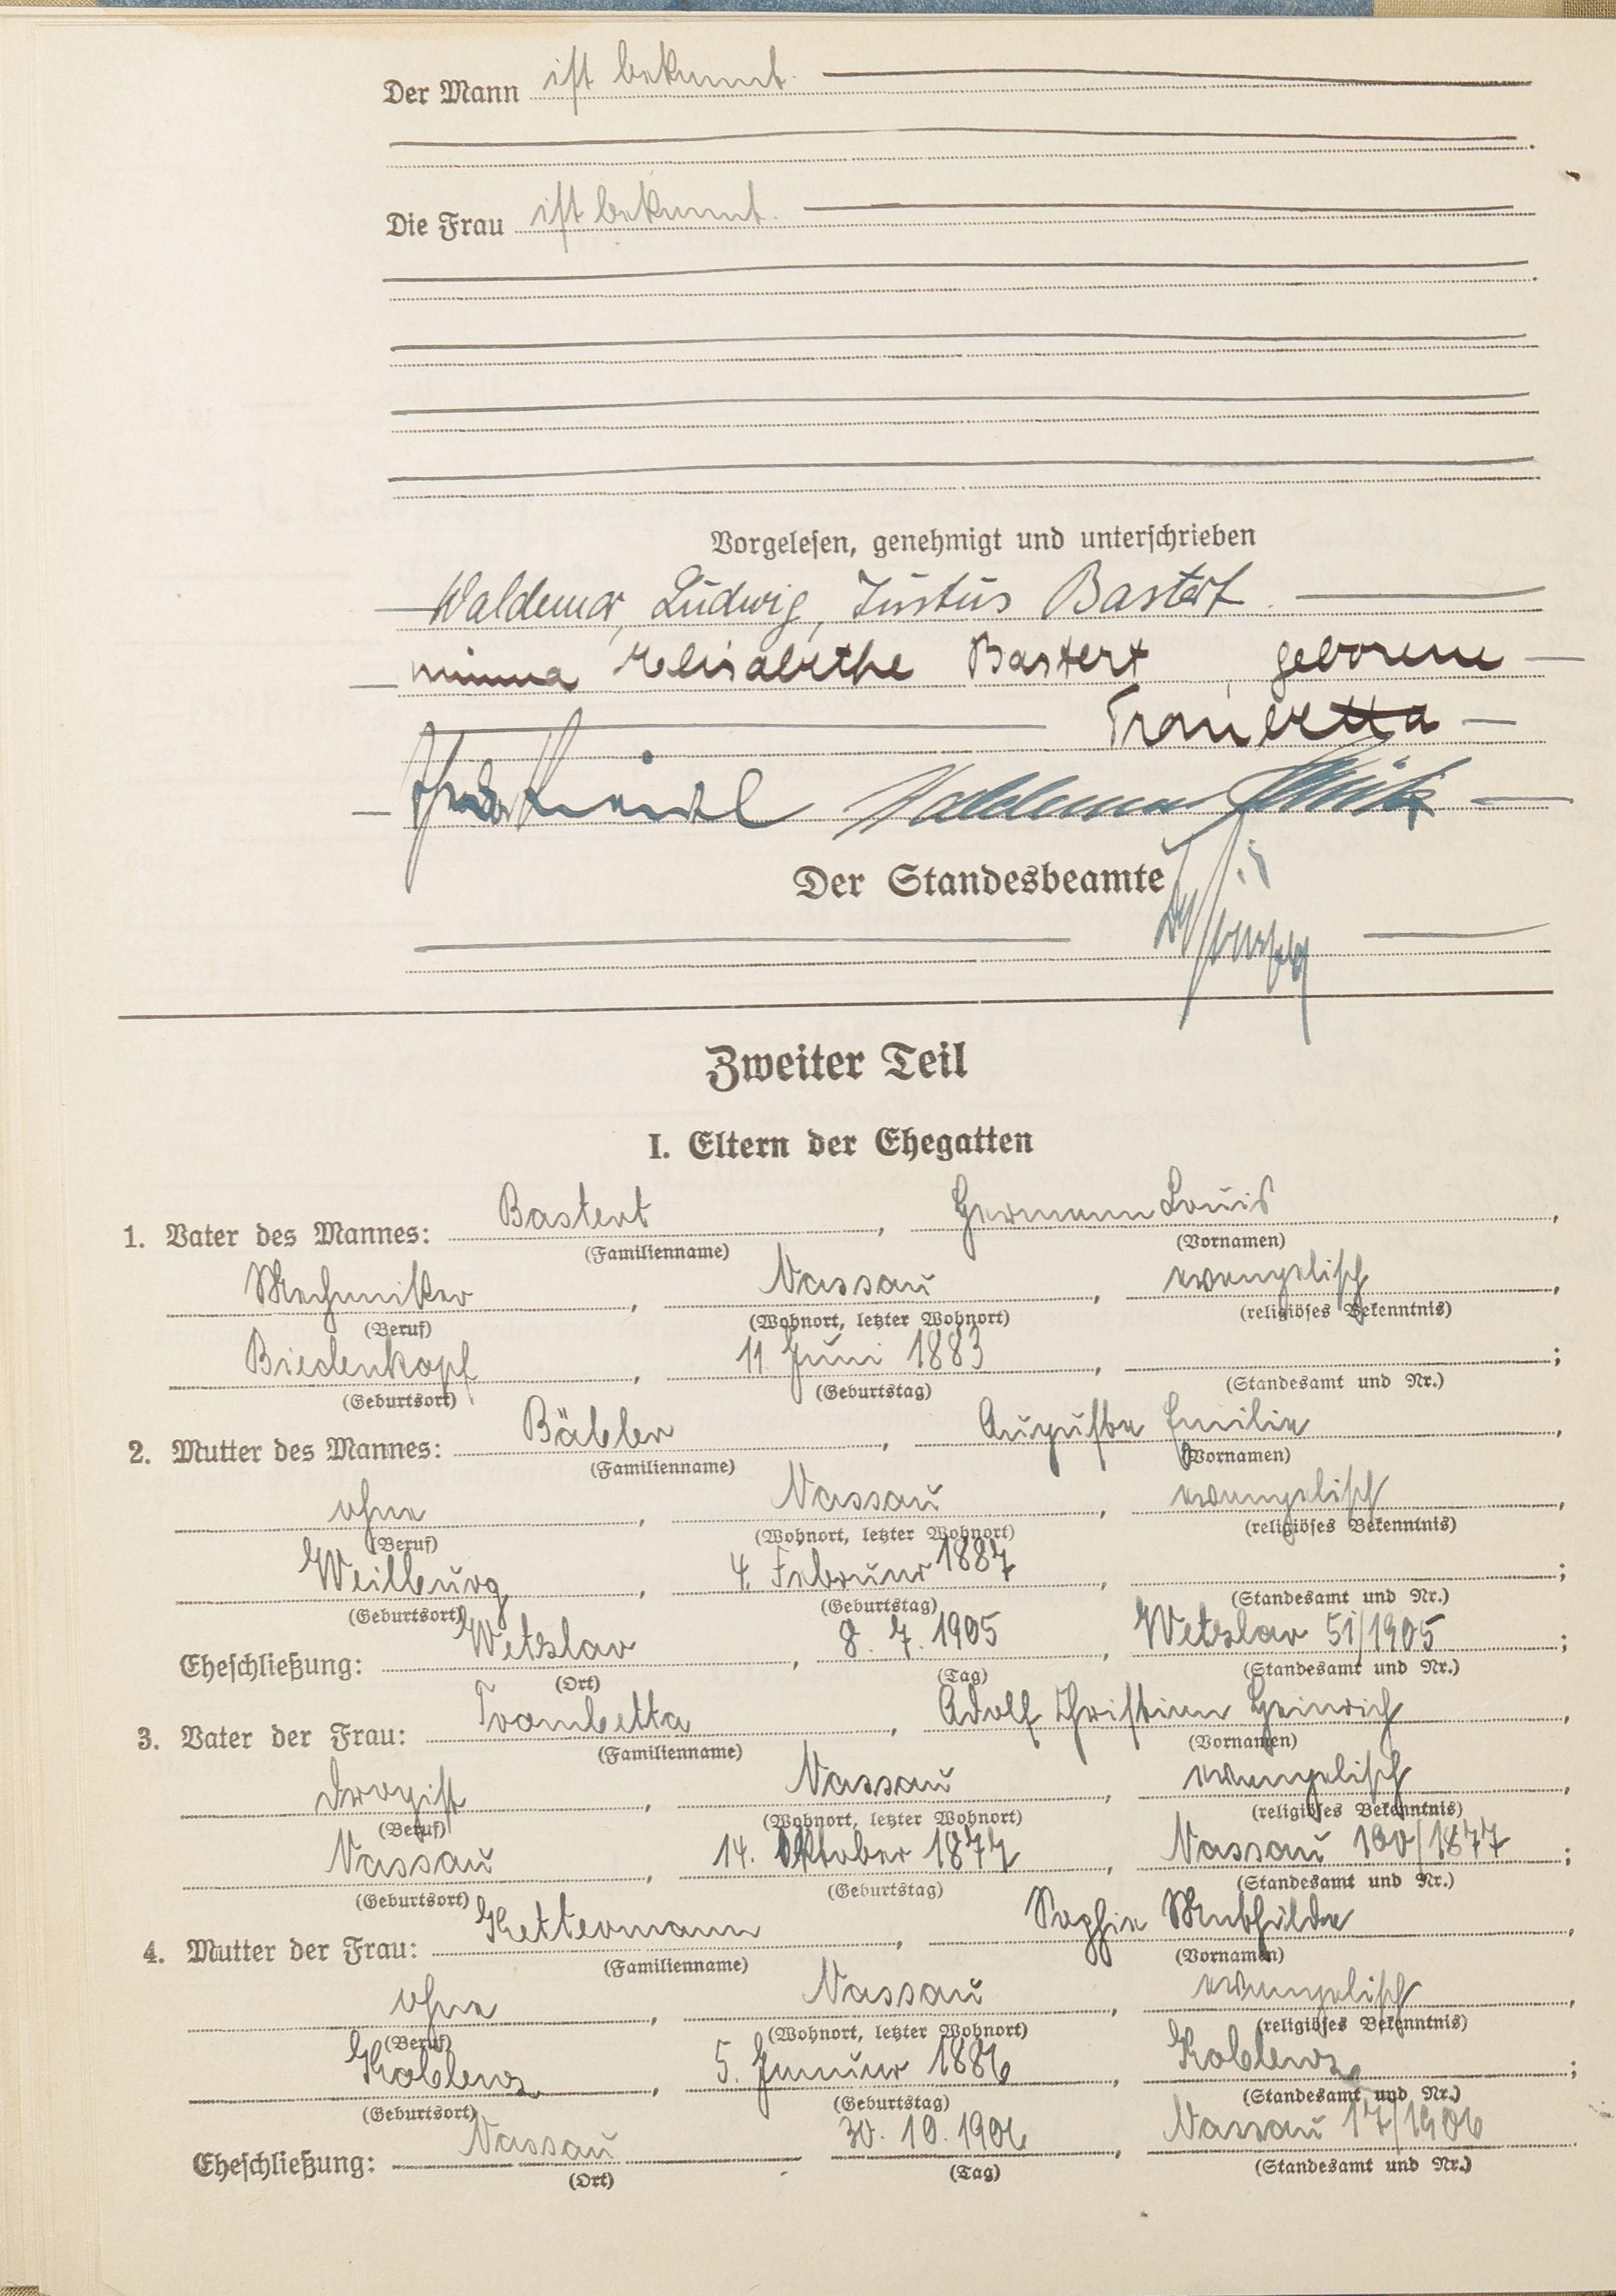 Der Mann ist bekannt.
Die Frau ist bekannt.
Vorgelesen, genehmigt und unterschrieben
Waldemar, Ludwig, Justus Bastert
Minna Elisabethe Bastert, geborene
Trombetta
Waldemar
Der Standesbeamte
Zweiter Teil
I. Eltern der Ehegatten
1. Vater des Mannes: Bastert, Hermann Louis,
(Familienname) (Vornamen)
Mechaniker, Nassau, evangelisch,
(Beruf) (Wohnort, letzter Wohnort) (religiöses Bekenntnis)
Biedenkopf, 11. Juni 1883, ;
(Geburtsort) (Geburtstag) (Standesamt und Nr.)
2. Mutter des Mannes: Bäbler, Auguste Emilie,
(Familienname) (Vornamen)
ohne, Nassau, evangelisch,
(Beruf) (Wohnort, letzter Wohnort) (religiöses Bekenntnis)
Weilburg, 4. Februar 1887, ;
(Geburtsort) (Geburtstag) (Standesamt und Nr.)
Eheschließung: Wetzlar, 8. 7. 1905, Wetzlar 51/1905;
(Ort) (Tag) (Standesamt und Nr.)
3. Vater der Frau: Trombetta, Adolf Christian Heinrich,
(Familienname) (Vornamen)
Drogist, Nassau, evangelisch,
(Beruf) (Wohnort, letzter Wohnort) (religiöses Bekenntnis)
Nassau, 14. Oktober 1877, Nassau 100/1877;
(Geburtsort) (Geburtstag) (Standesamt und Nr.)
4. Mutter der Frau: Kettermann, Sophie Mathilde,
(Familienname) (Vornamen)
ohne, Nassau, evangelisch,
(Beruf) (Wohnort, letzter Wohnort) (religiöses Bekenntnis)
Koblenz, 5. Januar 1886, Koblenz;
(Geburtsort) (Geburtstag) (Standesamt und Nr.)
Eheschließung: Nassau 30. 10. 1906, Nassau 17/1906
(Ort) (Tag) (Standesamt und Nr.)